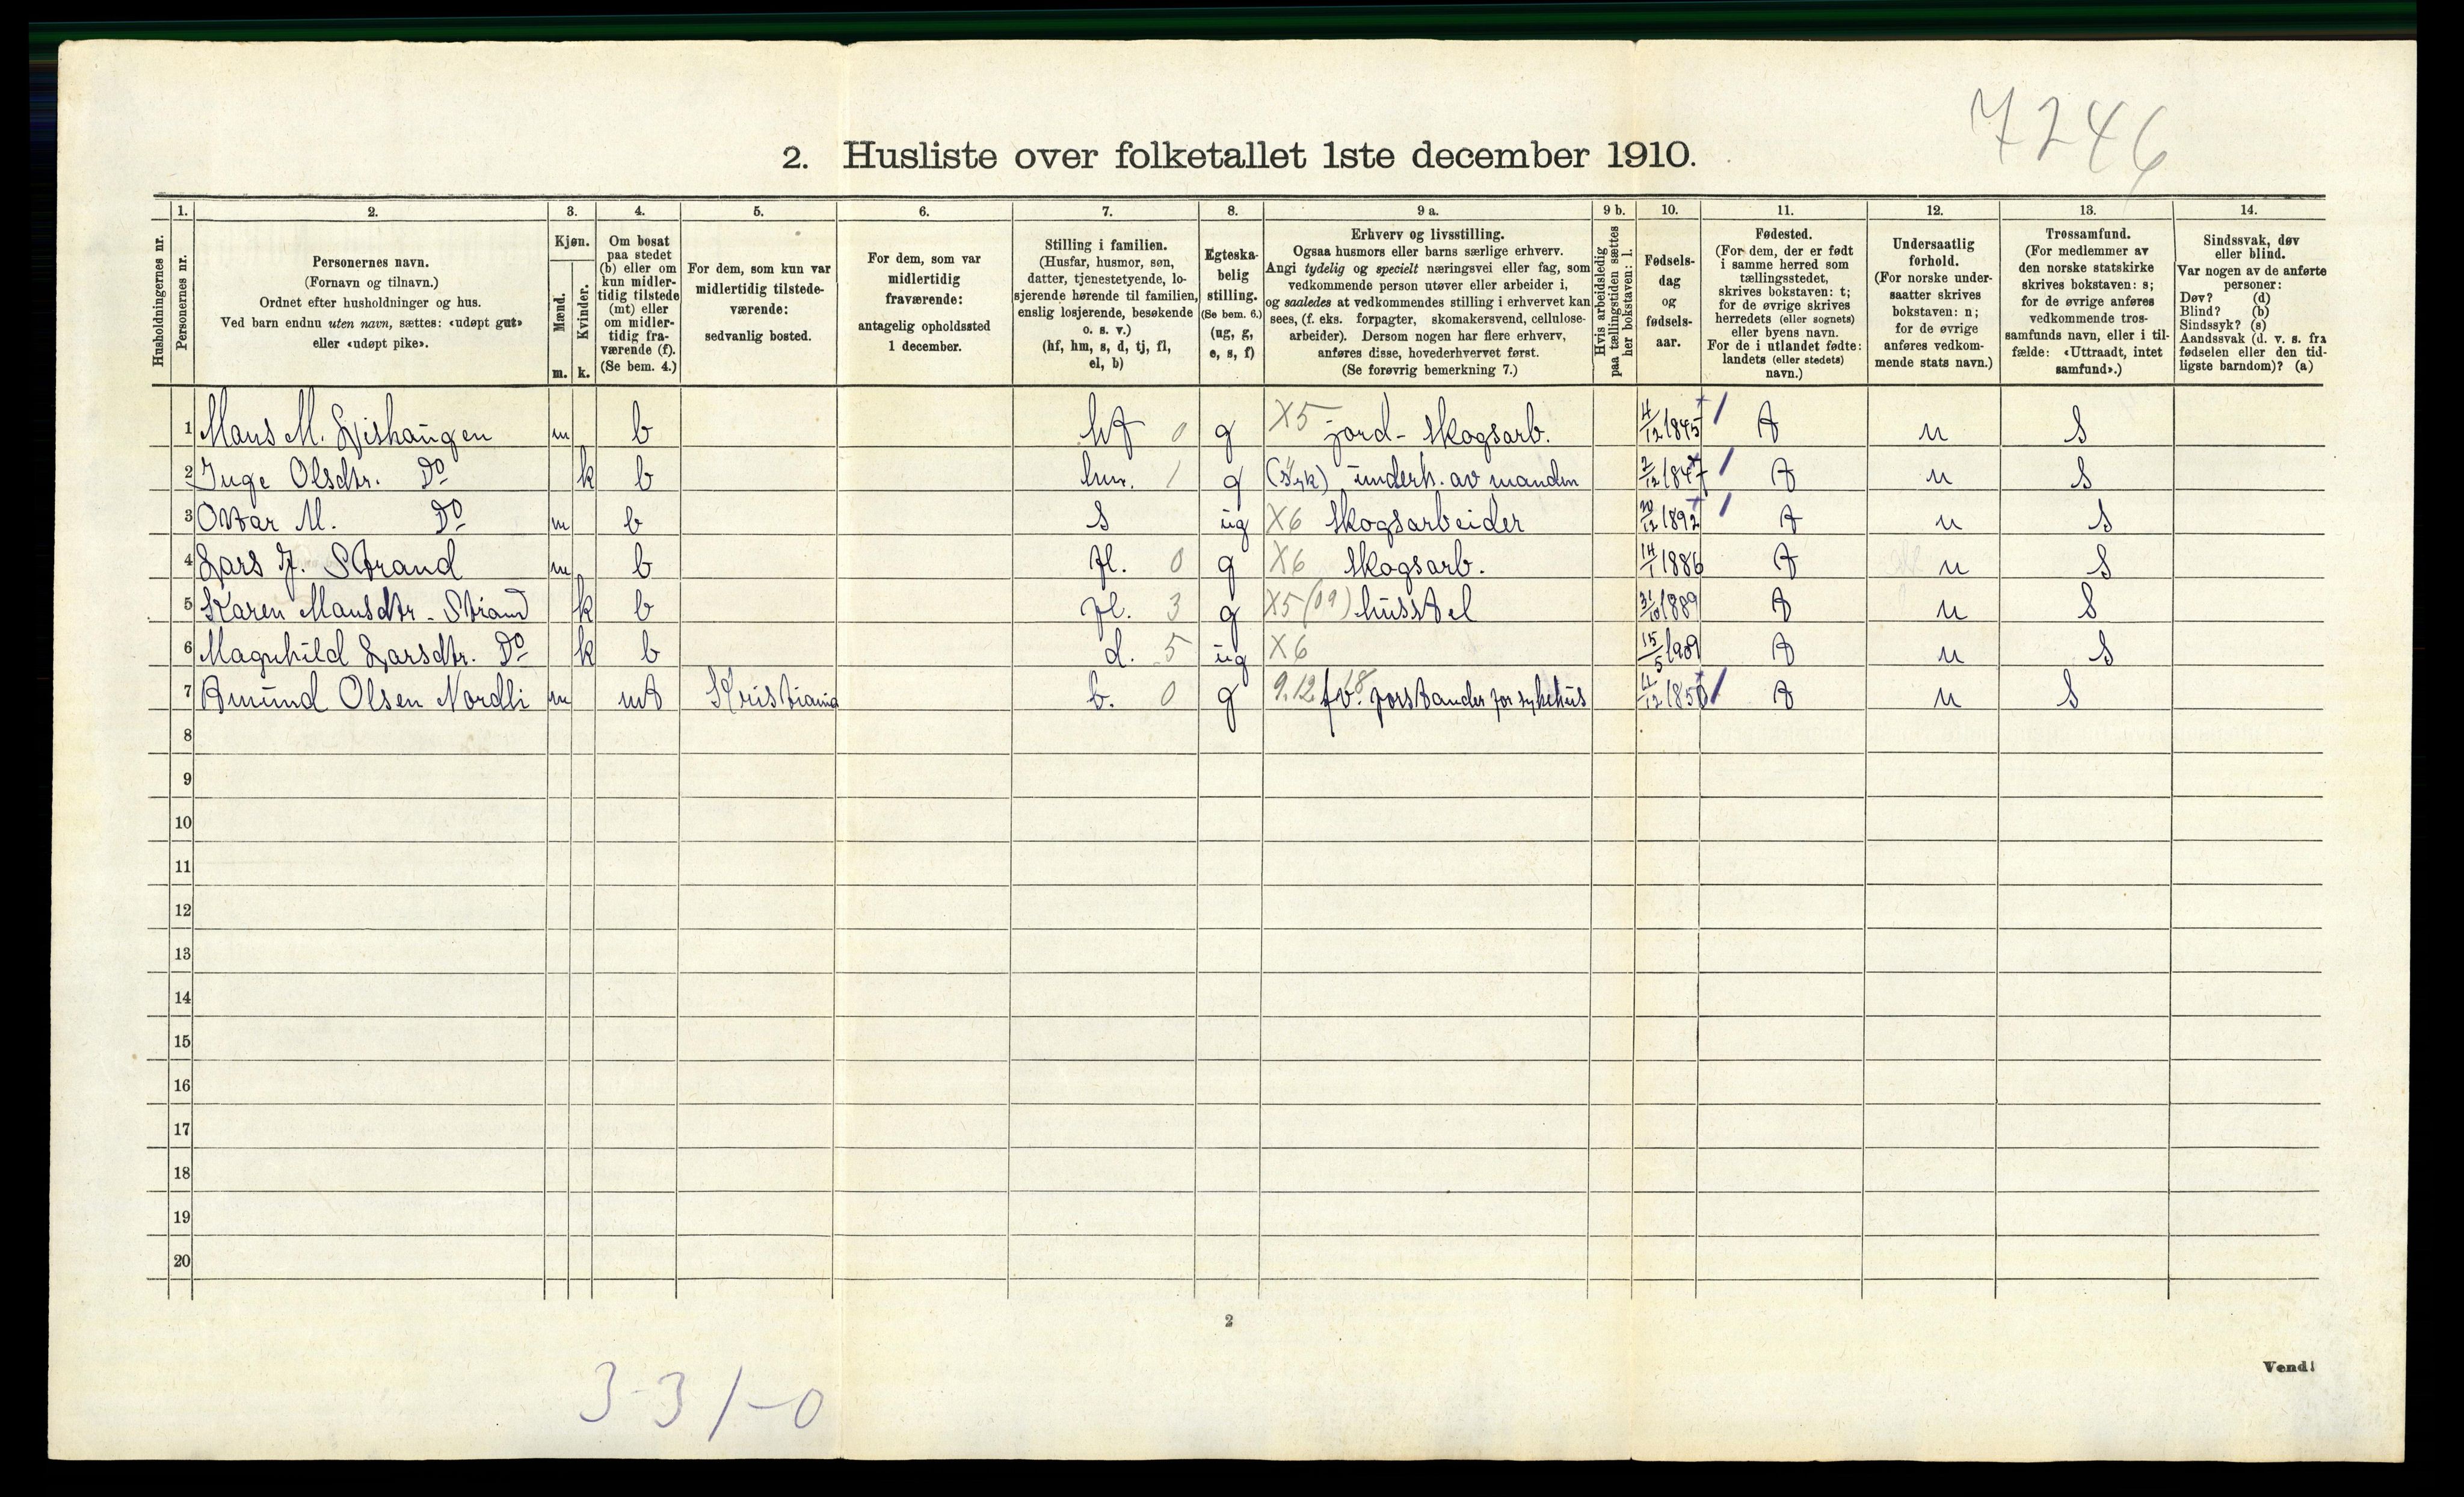 7246
2. Husliste over folketallet 1ste december 1910.
Husholdningernes nr.
1. Personernes nr.
2. Personernes navn.
(Fornavn og tilnavn.)
Ordnet efter husholdninger og hus.
Ved barn endnu uten navn, sættes: «udøpt gut»
eller «udøpt pike».
3. Kjøn.
Mænd. m.
Kvinder. k.
4. Om bosat
paa stedet
(b) eller om
kun midler-
tidig tilstede
(mt) eller
om midler-
tidig fra-
værende (f).
(Se bem. 4.)
5. For dem, som kun var
midlertidig tilstede-
værende:
sedvanlig bosted.
6. For dem, som var
midlertidig
fraværende:
antagelig opholdssted
1 december.
7. Stilling i familien.
(Husfar, husmor, søn,
datter, tjenestetyende, lo-
sjerende hørende til familien,
enslig losjerende, besøkende
o. s. v.)
(hf, hm, s, d, tj, fl,
el, b)
8. Egteska-
belig
stilling.
(Se bem. 6.)
(ug, g,
e, s, f)
9 a. Erhverv og livsstilling.
Ogsaa husmors eller barns særlige erhverv.
Angi tydelig og specielt næringsvei eller fag, som
vedkommende person utøver eller arbeider i,
og saaledes at vedkommendes stilling i erhvervet kan
sees, (f. eks. forpagter, skomakersvend, cellulose-
arbeider). Dersom nogen har flere erhverv,
anføres disse, hovederhvervet først.
(Se forøvrig bemerkning 7.)
9 b. Hvis arbeidsledig
paa tællingstiden sættes
her bokstaven: l.
10. Fødsels-
dag
og
fødsels-
aar.
11. Fødested.
(For dem, der er født
i samme herred som
tællingsstedet,
skrives bokstaven: t;
for de øvrige skrives
herredets (eller sognets)
eller byens navn.
For de i utlandet fødte:
landets (eller stedets)
navn.)
12. Undersaatlig
forhold.
(For norske under-
saatter skrives
bokstaven: n;
for de øvrige
anføres vedkom-
mende stats navn.)
13. Trossamfund.
(For medlemmer av
den norske statskirke
skrives bokstaven: s;
for de øvrige anføres
vedkommende tros-
samfunds navn, eller i til-
fælde: «Uttraadt, intet
samfund».)
14. Sindssvak, døv
eller blind.
Var nogen av de anførte
personer:
Døv? (d)
Blind? (b)
Sindssyk? (s)
Aandssvak (d. v. s. fra
fødselen eller den tid-
ligste barndom)? (a)
1 Mans M. m b hf 0 g X5 jord- skogsarb. 4/12 1845 t n s
2 Inge Olsdtr. Do k b hm. 1 g (syk) underh. av manden 2/12 1847 t n s
3 Ottar M. Do m b s ug X6 skogsarbeider 20/12 1892 t n s
4 Lars J. Strand m b fl. 0 g X6 skogsarb. 14/1 1886 t n s
5 Karen Mansdtr. Strand k b fl. 3 g X5 (09) husstel 31/10 1889 t n s
6 Magnhild Larsdtr. Do k b d. 5 ug X6 15/5 1909 t n s
7 Amund Olsen Nordli m mt Kristiania b. 0 g 9.12 18 fv. forstander for sykehus 11/12 1850 t n s
8
9
10
11
12
13
14
15
16
17
18
19
20
2
Vend!
3-3 1-0